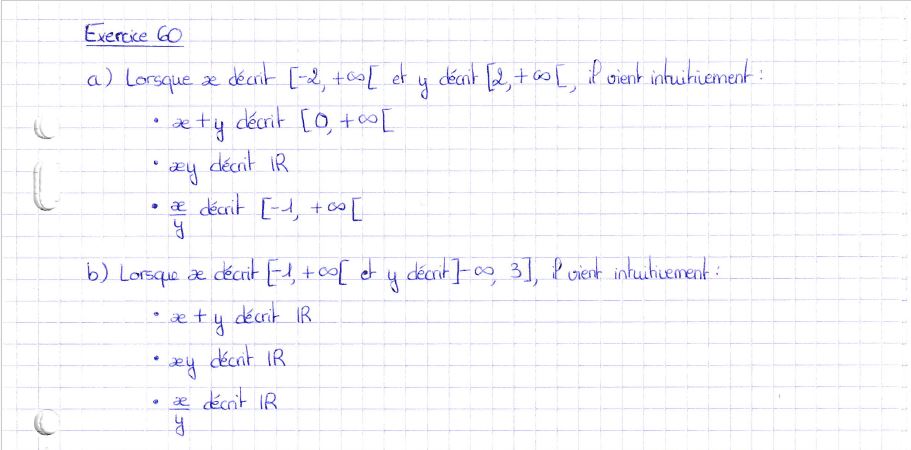 Exercice 60
a) Lorsque x décrit [-2, +∞[ et y décrit [2, +∞[, il vient intuitivement :
• x + y décrit [0, +∞[
• xy décrit IR
• x/y décrit [-1, +∞[
b) Lorsque x décrit [-1, +∞[ et y décrit ]-∞, 3], il vient intuitivement :
• x + y décrit IR
• xy décrit IR
• x/y décrit IR